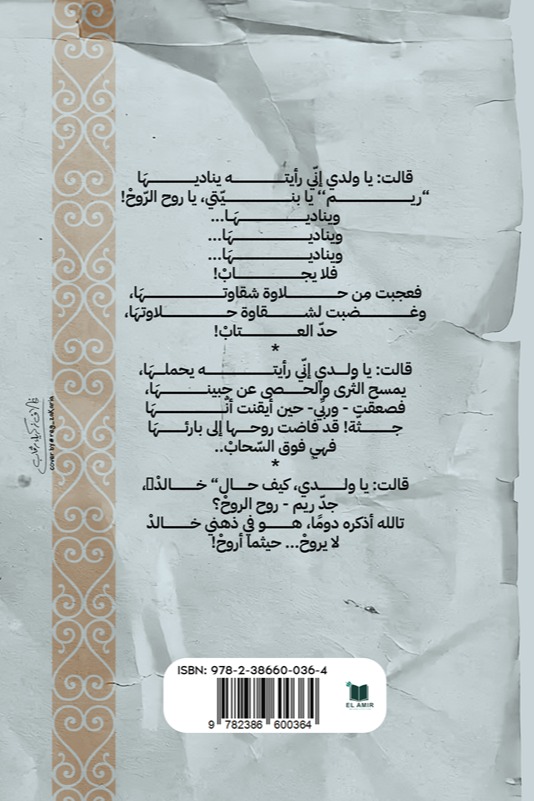 قالت: يا ولدي إنّي رأيته يناديهَا
“ريم‘‘ يا بنيّتي، يا روح الرّوحْ!
ويناديهَا...
ويناديهَا...
ويناديهَا...
فلا يجابْ!
فعجبت مِن حلاوة شقاوتهَا،
وغضبت لشقاوة حلاوتهَا،
حدّ العتابْ!
*
قالت: يا ولدي إنّي رأيته يحملهَا،
يمسح الثّرى والحصى عن جبينهَا،
فصعقت - وربّي- حين أيقنت أنّهَا
جثّة! قد فاضت روحها إلى بارئهَا
فهي فوق السّحابْ..
*
قالت: يا ولدي، كيف حال“ خالدْ▯،
جدّ ريم - روح الروحْ؟
تالله أذكره دومًا، هو في ذهني خالدْ
لا يروحْ... حيثما أروحْ!
ISBN: 978-2-38660-036-4
9 782386 600364
EL AMIR